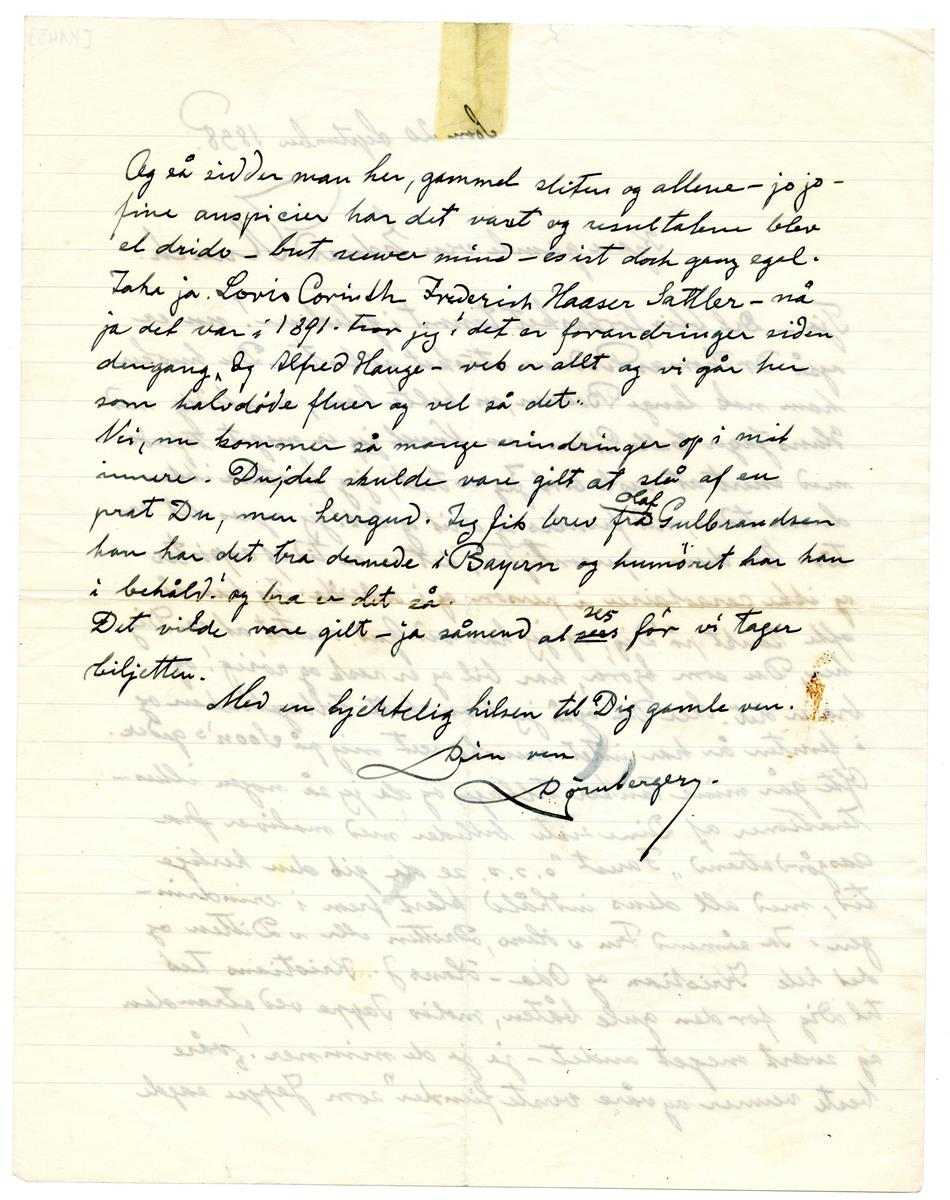 Og så sidder man her, gammel sliten og allene – jo jo –
fine auspicier har det vart og resultatene blev
et drido – but newer mind – es ist doch ganz egal.
Jaha ja. Lovis Corinth Frederich Haaser Sattler – nå
ja det var i 1891. tror jeg! det er forandringer siden
dengang, Og Alfred Hauge – vek er allt og vi går her
som halvdöde fluer og vel så det.
Nei, nu kommer så mange erindringer op i mit
innere. Du, det skulde vare gilt at slå af en
prat Du, men herrgud. Jeg fik brev fra Olaf Gulbrandsen
han har det bra dernede i Bayern og humöret har han
i behåld! og bra er det så.
Det vilde vare gilt – ja såmend at ses för vi tager
biljetten.
Med en hjertelig hilsen til Dig gamle ven.
Din ven
Dörnberger.